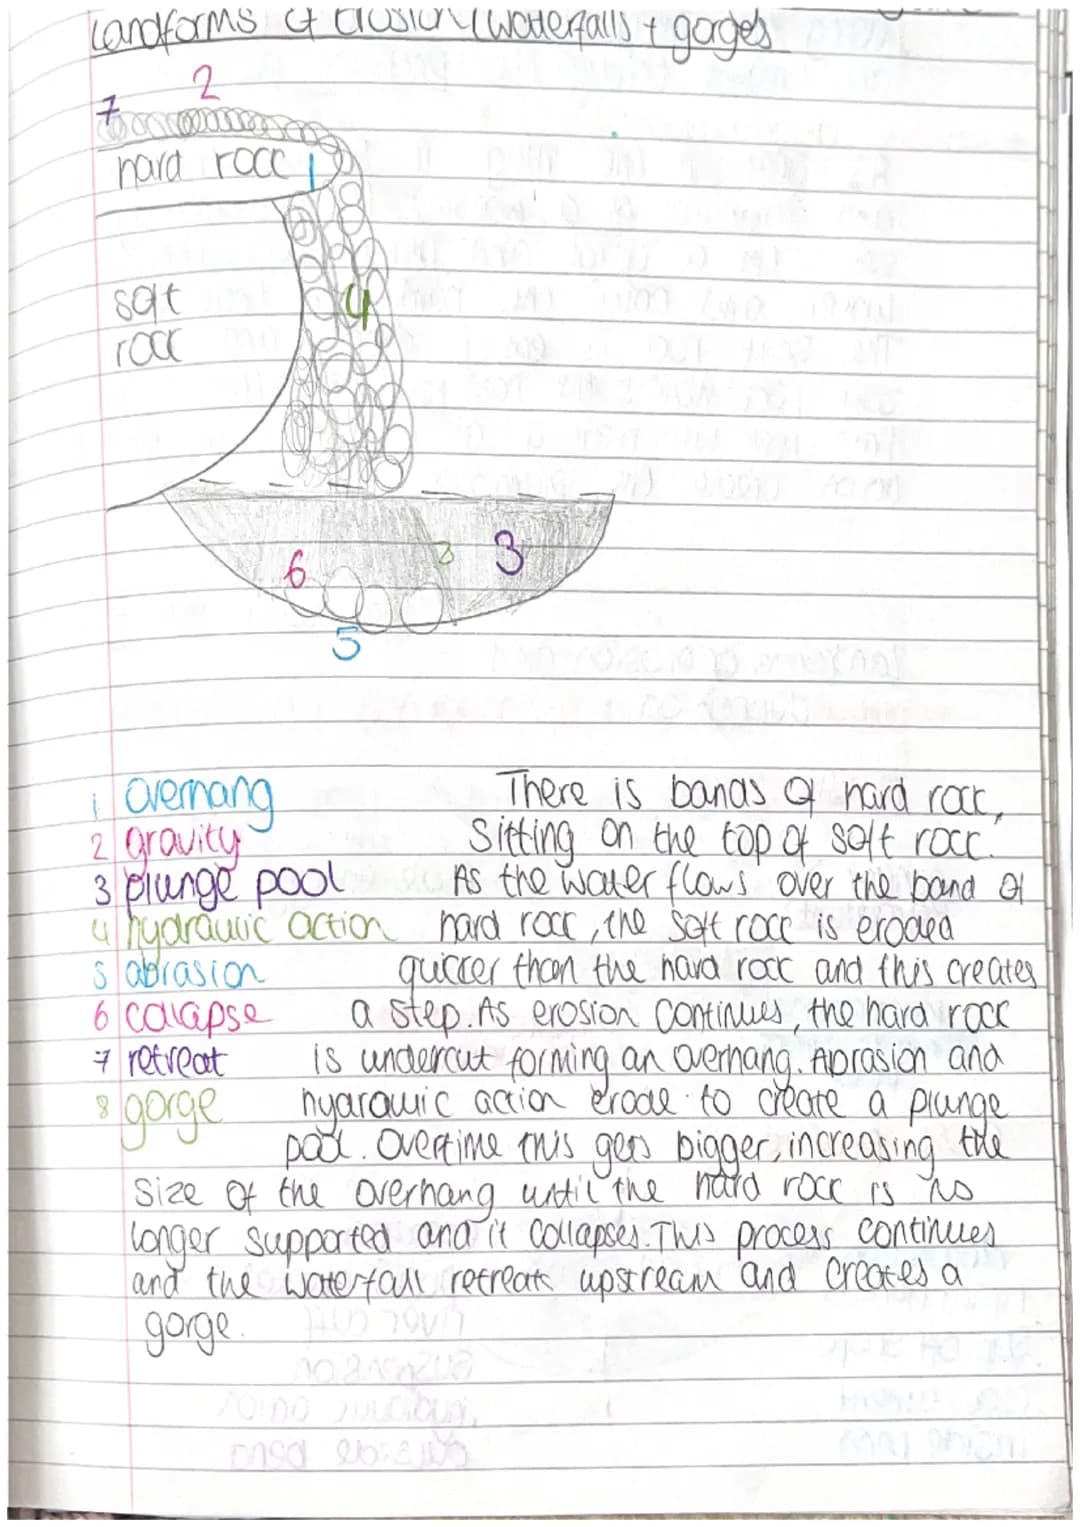 Landforms of erosion (waterfalls + gorges)
2
7
hard rock 1
soft
rock
4
6
3
3
5
1 overhang
2 gravity
3 plunge pool
4 hydraulic action
5 abrasion
6 collapse
7 retreat
8 gorge
There is bands of hard rock,
Sitting on the top of soft rock.
As the water flows over the band of
hard rock, the soft rock is eroded
quicker than the hard rock and this creates
a step. As erosion continues, the hard rock
is undercut forming an overhang. Abrasion and
hydraulic action erode to create a plunge
pool. Overtime this gets bigger, increasing the
size of the overhang until the hard rock is no
longer supported and it collapses. This process continues
and the waterfall retreats upstream and creates a
gorge.